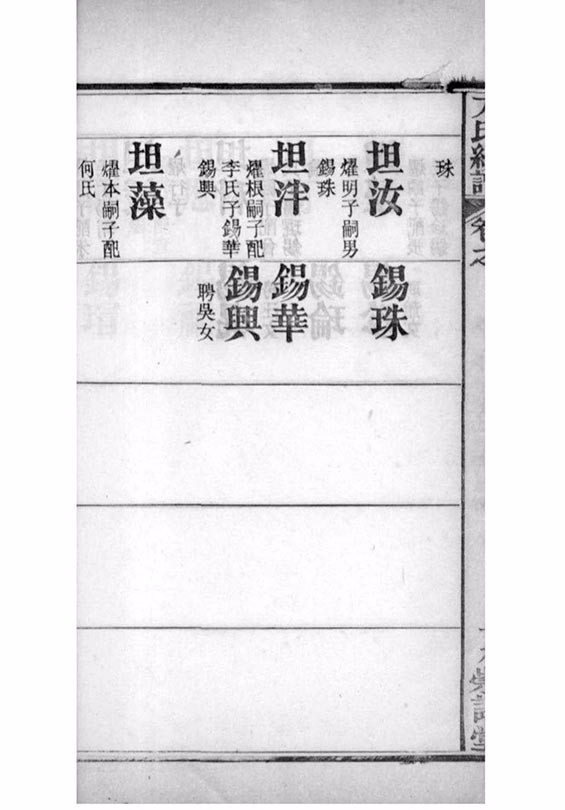 珠
坦汝
燿明子嗣男
錫珠
坦泮
燿根嗣子配
李氏子錫華
錫興
坦藻
燿本嗣子配
何氏
錫珠
錫華
錫興
聘吳女